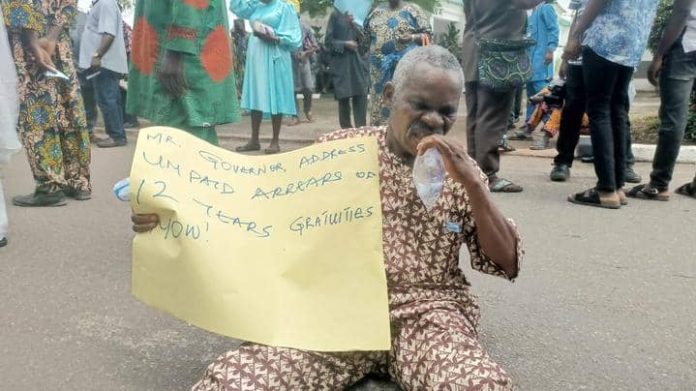 MR. GOVERNOR, ADDRESS
UNPAID ARREARS OF
12 YEARS GRATUITIES
NOW!